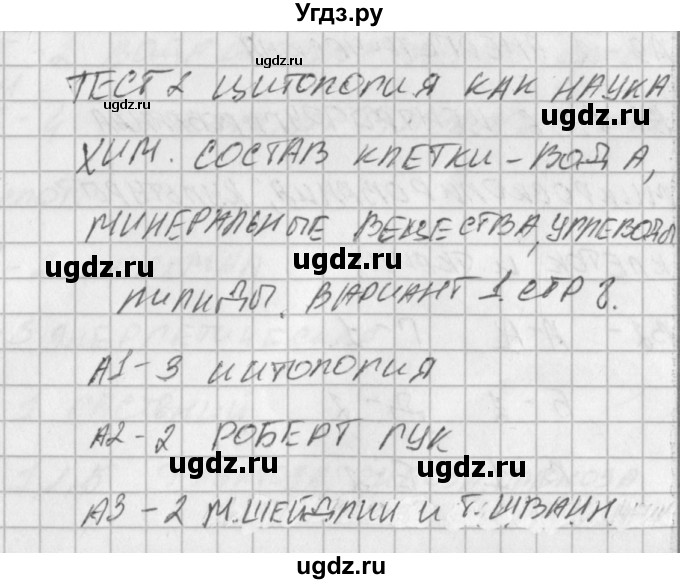 Угдз.ру
ТЕСТ 2 ЦИТОЛОГИЯ КАК НАУКА
ugdz.ru
ugdz.ru
ugdz.ru
ХИМ. СОСТАВ КЛЕТКИ - ВОДА,
МИНЕРАЛЬНЫЕ ВЕЩЕСТВА, УГЛЕВОДЫ
ugdz.ru
ugdz.ru
ЛИПИДЫ. ВАРИАНТ 1. СТР 8.
ugdz.ru
ugdz.ru
А1 - 3 ЦИТОЛОГИЯ
ugdz.ru
А2 - 2 РОБЕРТ ГУК
ugdz.ru
ugdz.ru
А3 - 2 М. ШЛЕЙДЕН И Т. ШВАНН.
ugdz.ru
ugdz.ru